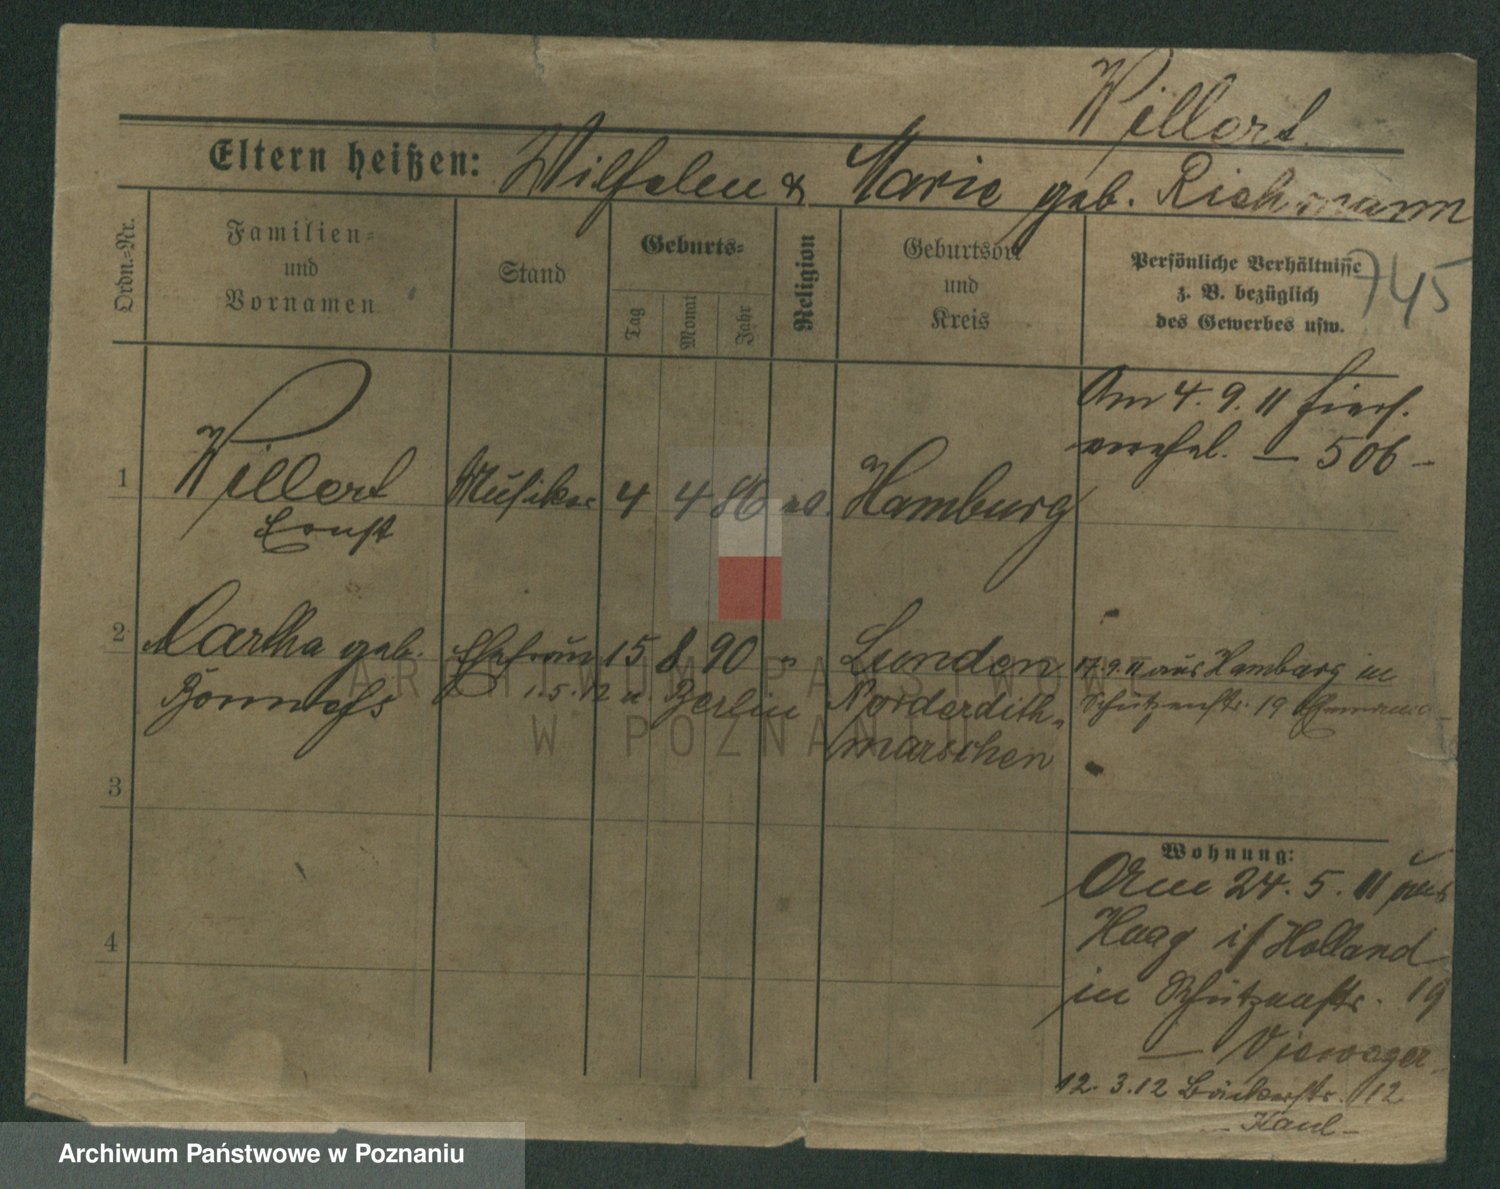 Willert.
Eltern heißen: Wilhelm & Marie geb. Richmann
Ordn.-Nr.
Familien- und Vornamen
Stand
Geburts-
Tag
Monat
Jahr
Religion
Geburtsort und Kreis
Persönliche Verhältnisse z. B. bezüglich des Gewerbes usw.
745
Am 4. 9. 11 hiers.
verehel. — 506 —
1
Willert
Ernst
Musiker
4 4 86
Hamburg
2
Martha geb.
Ehefrau
15 8 90 "
Lunden
Norderdith-
marschen
1.5.12 n. Berlin
17.9.11 aus Hamburg in
Schützenstr. 19 Ehemann
3
4
Wohnung:
Am 24. 5. 11 aus
Haag i/ Holland
in Schützenstr. 19
12. 3. 12 Bäckerstr. 12
ARCHIWUM PAŃSTWOWE
W POZNANIU
Archiwum Państwowe w Poznaniu